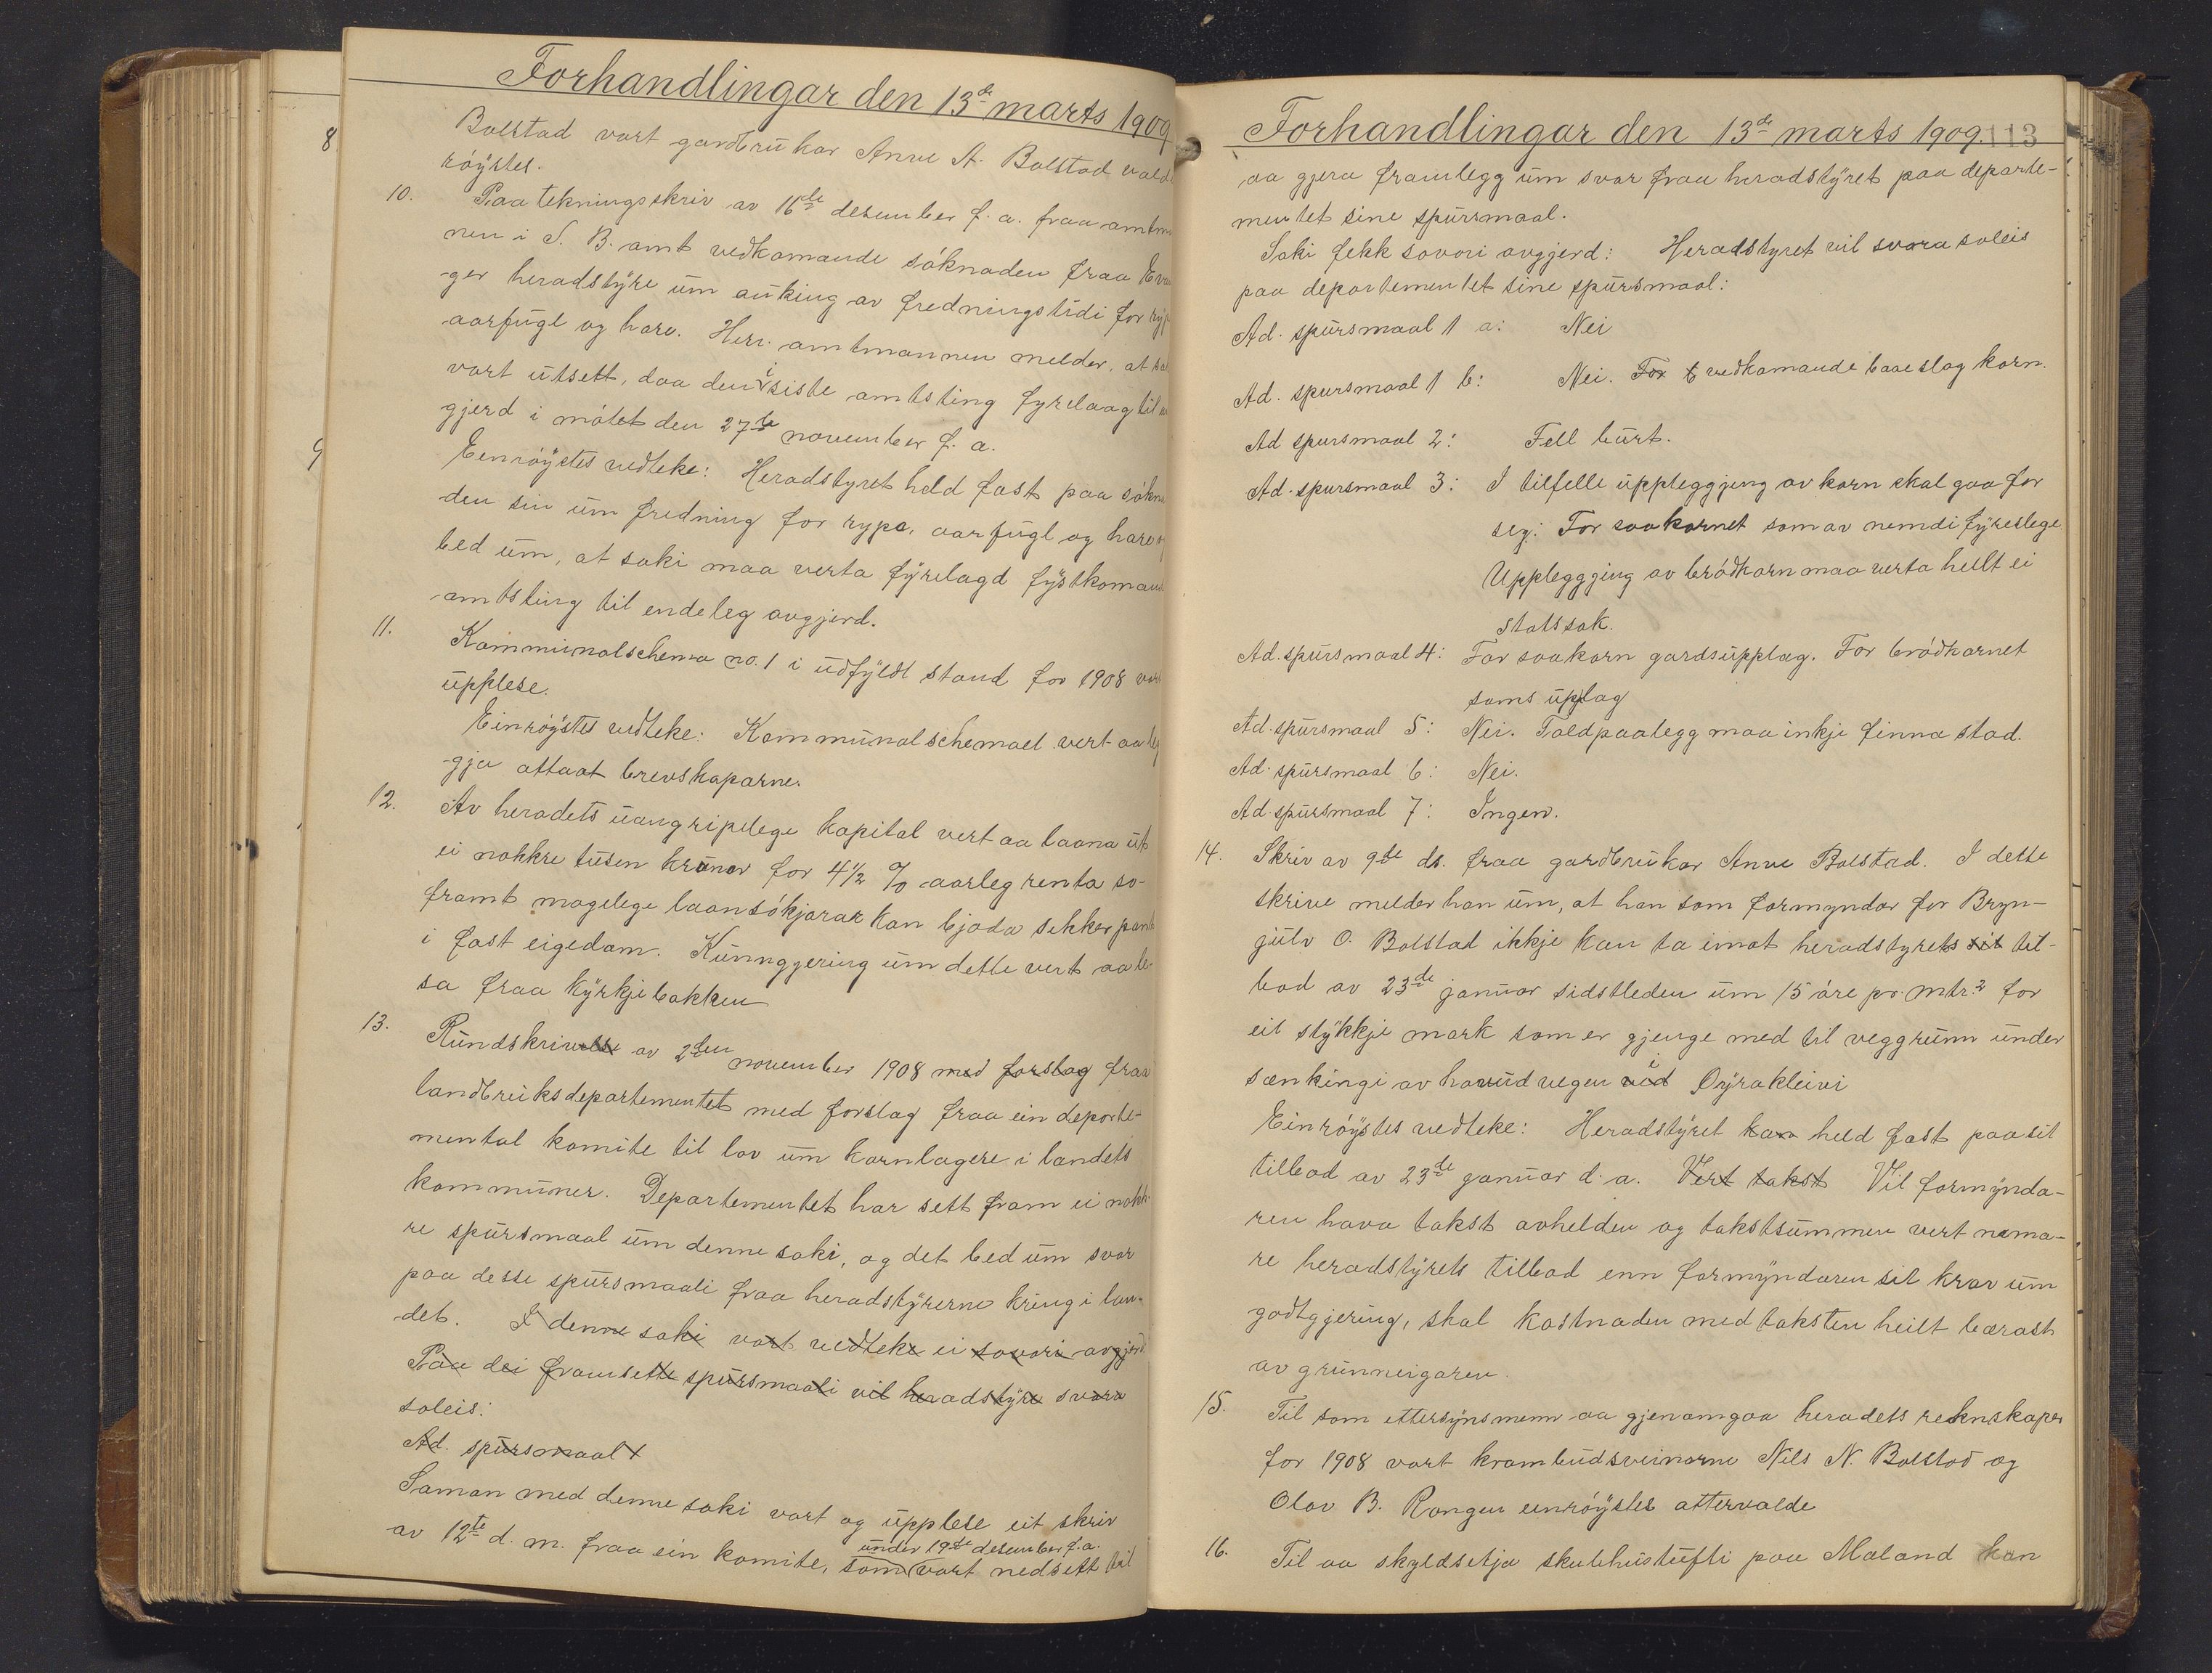 Forhandlingar den 13de marts 1909
Bolstad vart gardbrukar Anve A. Bolstad vald
röystes.
10. Paatekningsskriv av 16de desember f. a. fraa amtm
nen i S. B. amt vedkomande söknaden fraa Evan
ger heradstyre um auking av fredningstidi for ryp
aarfugl og hare. Herr amtmannen melder, at sa
vart utsett, daa den i siste amtsting fyrelaag til
gjerd i mötet den 27de november f. a.
Eenröystes vedteke: Heradstyret held fast paa sökn
den sin um fredning for rypa, aarfugl og hare o
bed um, at saki maa verta fyrelagd fystkomand
amtsting til endeleg avgjerd.
11. Kommunalschema no. 1 i udfyldt stand for 1908 vart
upplese.
Einröystes vedteke: Kommunalschemaet vert aa leg
gja attaat brevskaparne.
12. Av heradets uangripelege kapital vert aa laana ut
ei nokkre tusen kronor for 4 1/2 % aarleg renta so-
framt mogelege laansökjarar kan bjoda sekker pant
i fast eigedom. Kunngjering um dette vert aa le-
sa fraa kyrkjebakken
13. Rundskrivelse av 2den november 1908 med forslag fraa
landbruksdepartementet med forslag fraa ein departe-
mental komite til lov um kornlagere i landets
kommuner. Departementet har sett fram ei nokk-
re spursmaal um denne saki, og det bed um svar
paa desse spursmaali fraa heradstyrerne kring i lan-
det. I denne saki vart vedteke ei sovori avgjerd
Paa dei framsette spursmaali vil heradstyre svara
soleis:
Ad. spursmaal 1
Saman med denne saki vart og upplese eit skriv
under 19de desember f.a.
av 12te d. m. fraa ein komite, som vart nedsett til
8
9
Forhandlingar den 13de marts 1909. 113
aa gjera framlegg um svar fraa heradstyret paa departe-
mentet sine spursmaal.
Saki fekk sovori avgjerd: Heradstyret vil svara soleis
paa departementet sine spursmaal:
Ad. spursmaal 1 a: Nei
Ad. spursmaal 1 b: Nei. For b vedkomande baae slag korn.
Ad spursmaal 2: Fell burt.
Ad. spursmaal 3: I tilfelle uppleggjing av korn skal gaa for
seg: For saakornet som av nemdi fyreslege
Uppleggging av brödkorn maa verta hellt ei
statssak.
Ad. spursmaal 4: For saakorn gardsupplag. For brödkornet
soms upplag
Ad. spursmaal 5: Nei. Toldpaalegg maa inkje finna stad.
Ad. spursmaal 6: Nei.
Ad. spursmaal 7: Ingen.
14. Skriv av 9de ds. fraa gardbrukar Anve Bolstad. I dette
skrive melder han um, at han som formyndar for Bryn-
julv O. Bolstad ikkje kan ta imot heradstyrets sit til-
bod av 23de januar sidstleden um 15 öre pr. mtr.2 for
eit stykkje mark som er gjenge med til veggrunn under
sænkingi av hovudvegen ved i Öyrakleivi
Einröystes vedteke: Heradstyret kan held fast paa sit
tilbod av 23de januar d. a. Vert takst Vil formynda-
ren hava takst avhelden og takstsummen vert næma-
re heradstyrets tilbod enn formyndaren sit krav um
godtgjering, skal kostnaden med taksten heilt bærast
av grunneigaren.
15. Til som ettersynsmenn aa gjenomgaa heradets reknskaper
for 1908 vart krambudsveinarne Nels N. Bolstad og
Olav B. Rongen einröystes attervalde
16. Til aa skyldsetja skulehustufti paa Maland kan